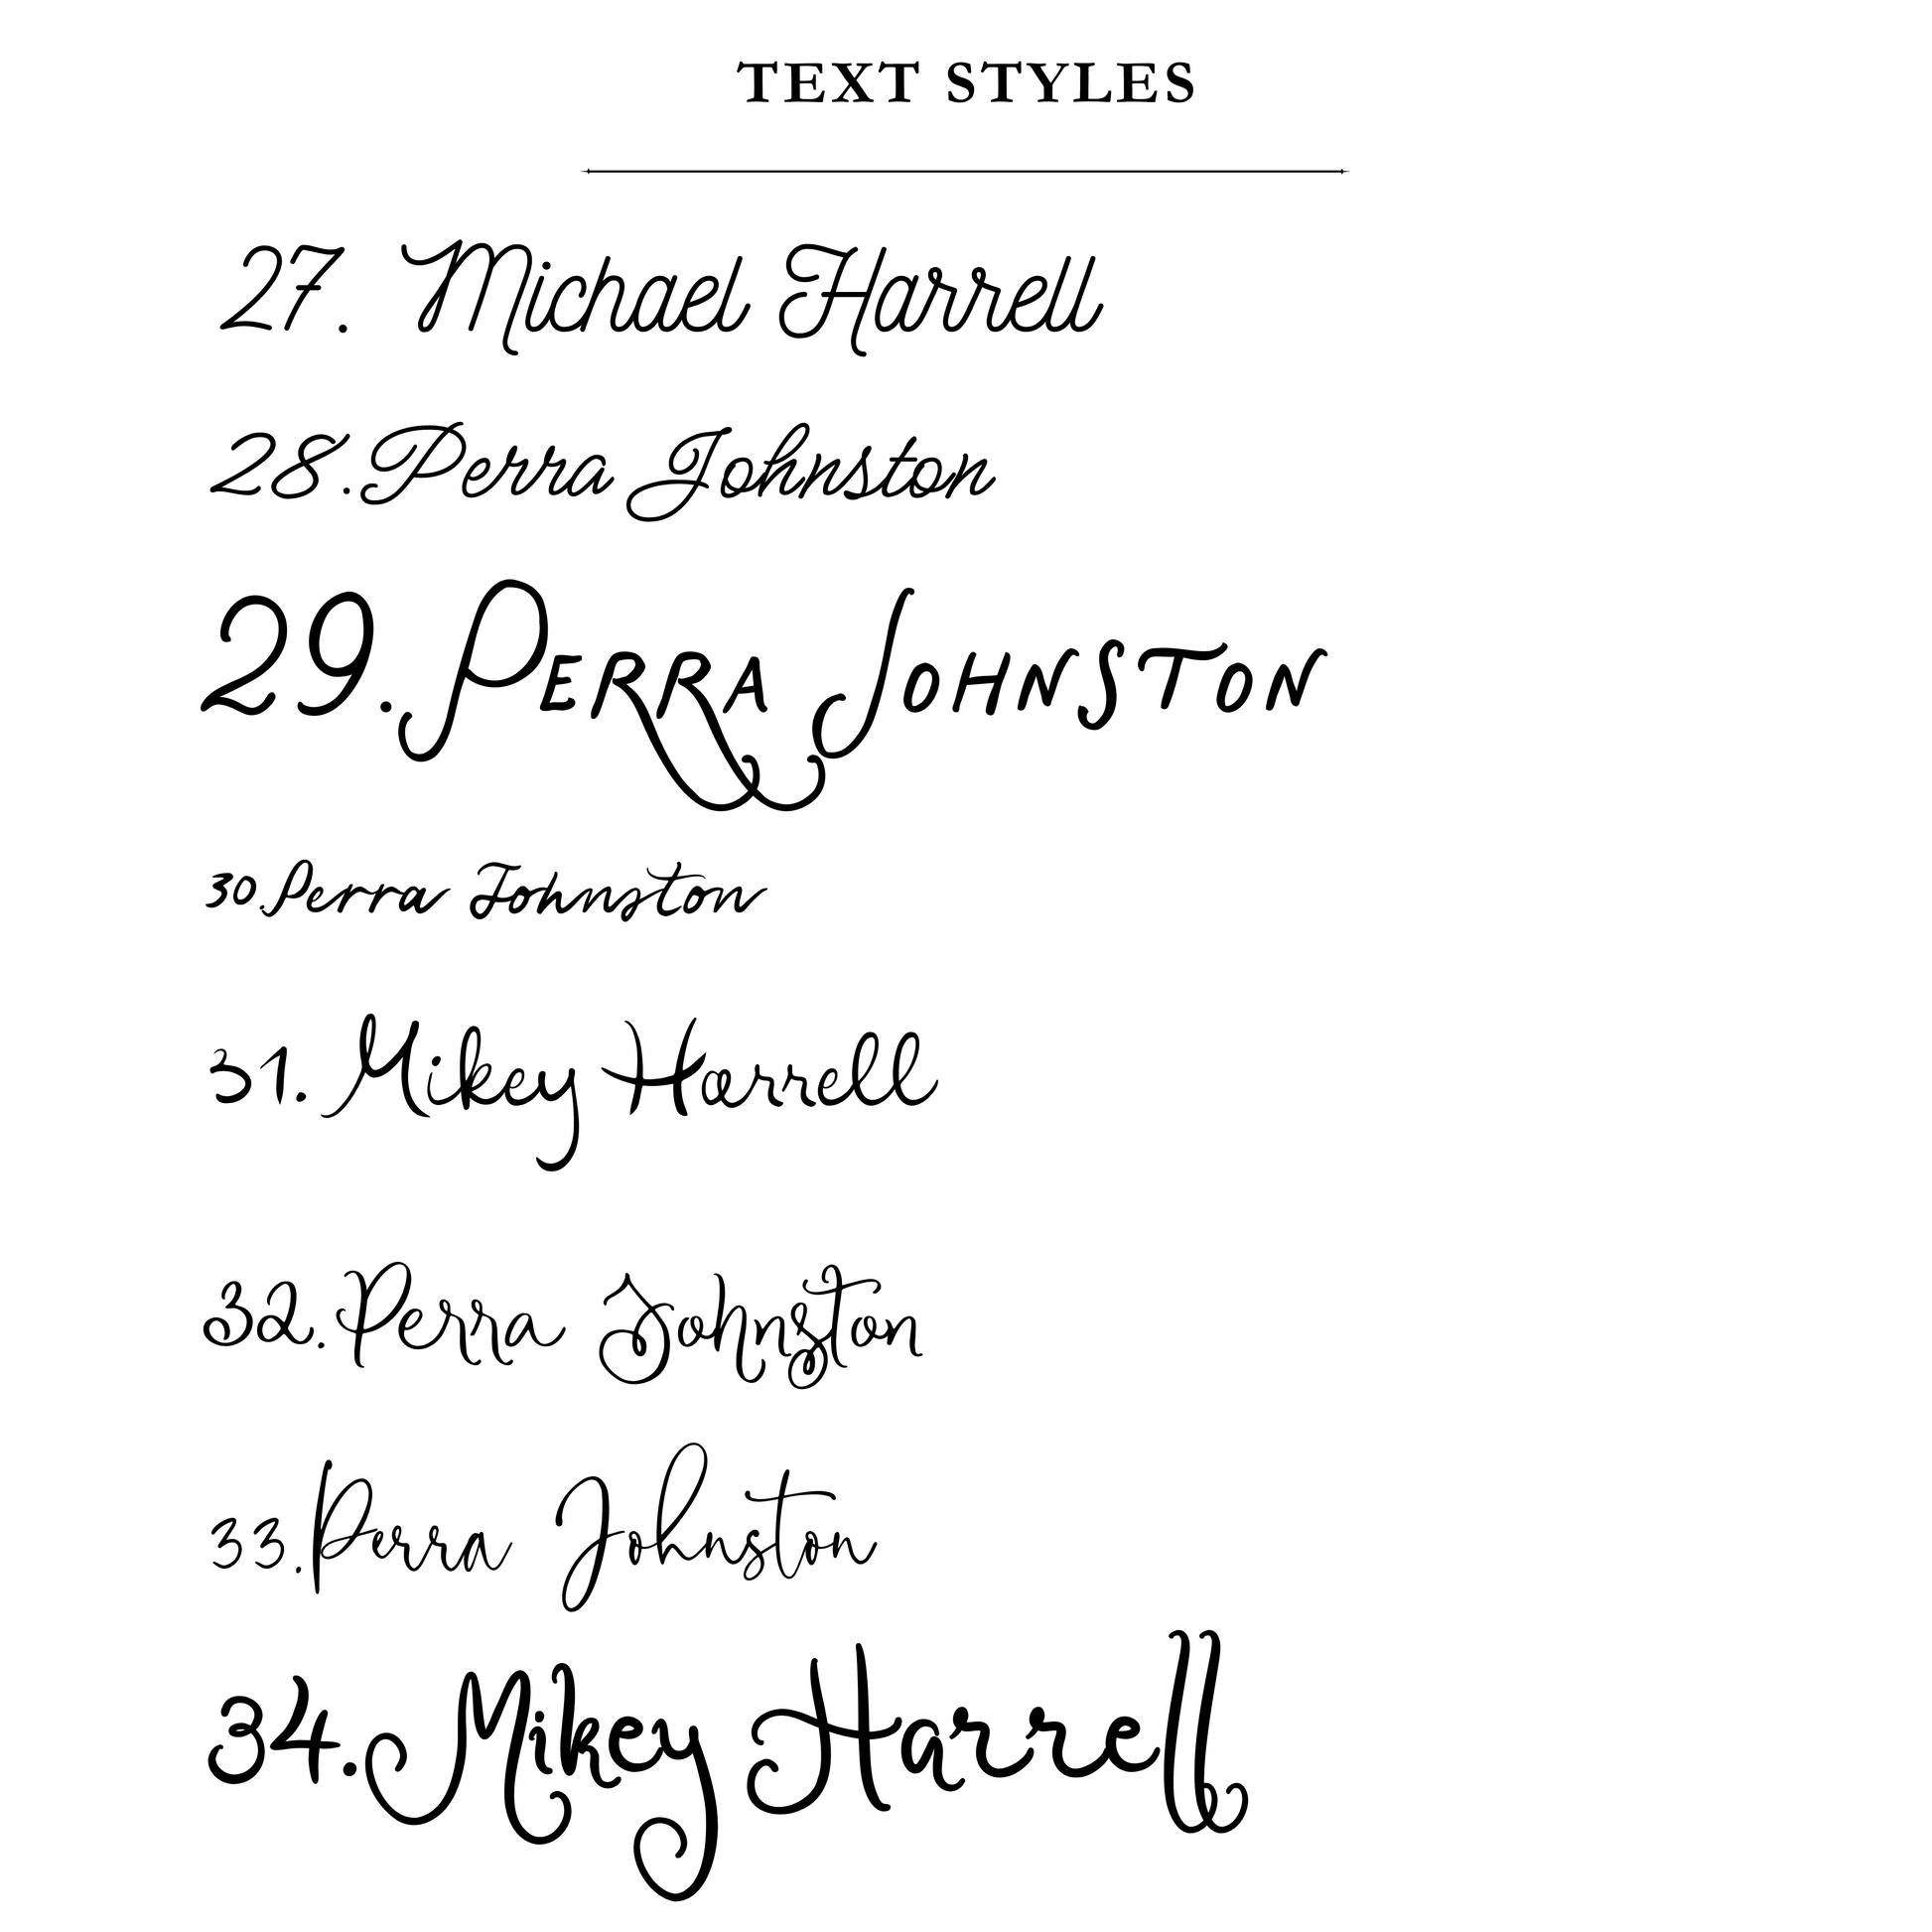 TEXT STYLES
27. Michael Harrell
28. Perra Johnston
29. PERRA JOHNSTON
30. Perra Johnston
31. Mikey Harrell
32. Perra Johnston
33. Perra Johnston
34. Mikey Harrell